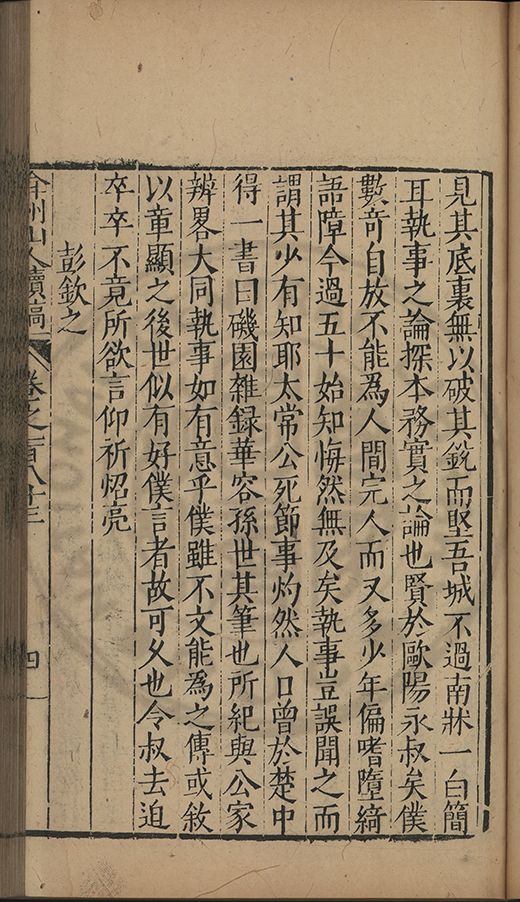 見其底裏無以破其銳而堅吾城不過南牀一白簡
耳執事之論探本務實之論也賢於歐陽永叔矣僕
數奇自放不能爲人間完人而又多少年偏嗜墮綺
語障今過五十始知悔然無及矣執事豈誤聞之而
謂其少有知耶太常公死節事灼然人口曾於楚中
得一書曰磯園雜録華容孫世其筆也所紀與公家
辨畧大同執事如有意乎僕雖不文能爲之傳或敘
以童顯之後世似有好僕言者故可久也令叔去迫
卒卒不竟所欲言仰祈炤亮
彭欽之
弇州山人續稿 卷之一百八十三 四